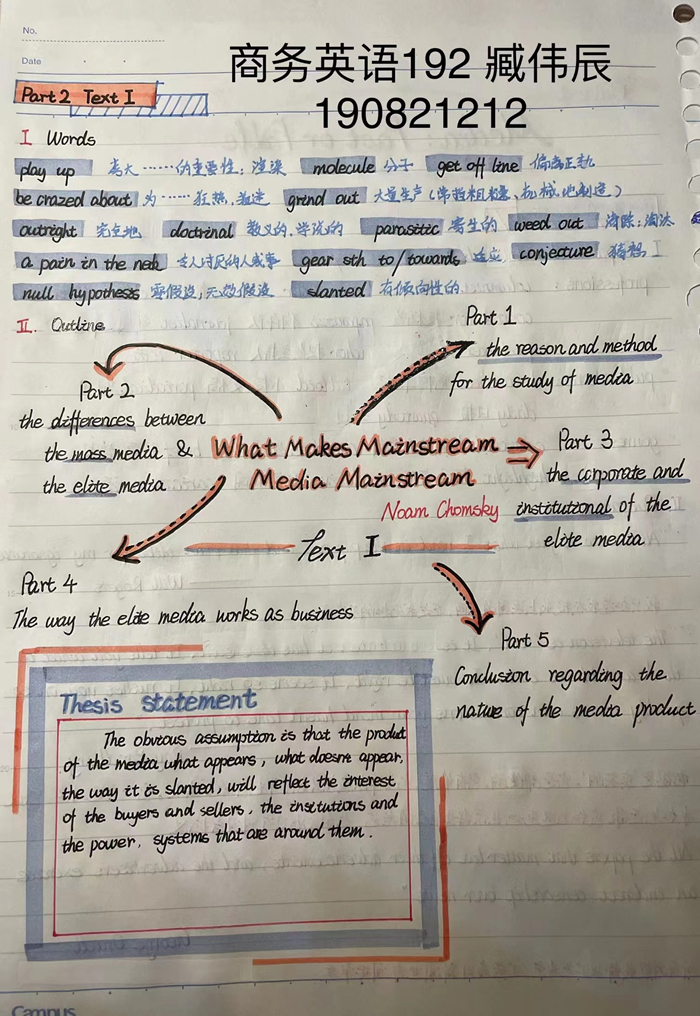 No.
Date
商务英语192 臧伟辰
190821212
Part 2 Text I
I Words
play up 夸大……的重要性；渲染 molecule 分子 get off line 偏离正轨
be crazed about 为……狂热,着迷 grind out 大量生产(常指粗糙,机械地制造)
outright 完全地 doctrinal 教义的,学说的 parasitic 寄生的 weed out 清除；淘汰
a pain in the neck 令人讨厌的人或事 gear sth to/towards 适应 conjecture 猜想
null hypothesis 零假设,无效假设 slanted 有倾向性的
II. Outline
Part 1
the reason and method
for the study of media
Part 2
the differences between
the mass media &
the elite media
What Makes Mainstream
Media Mainstream
Noam Chomsky
Text I
Part 3
the corporate and
institutional of the
elite media
Part 4
The way the elite media works as business
Part 5
Conclusion regarding the
nature of the media product
Thesis statement
The obvious assumption is that the product
of the media what appears, what doesnt appear,
the way it is slanted, will reflect the interest
of the buyers and sellers, the institutions and
the power, systems that are around them.
Campus